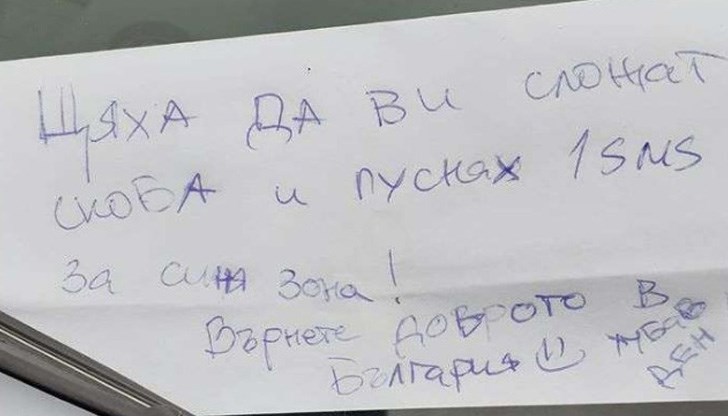 Щяха да ви сложат
скоба и пуснах 1 SMS
за синя зона!
Върнете доброто в
България хубав
ден